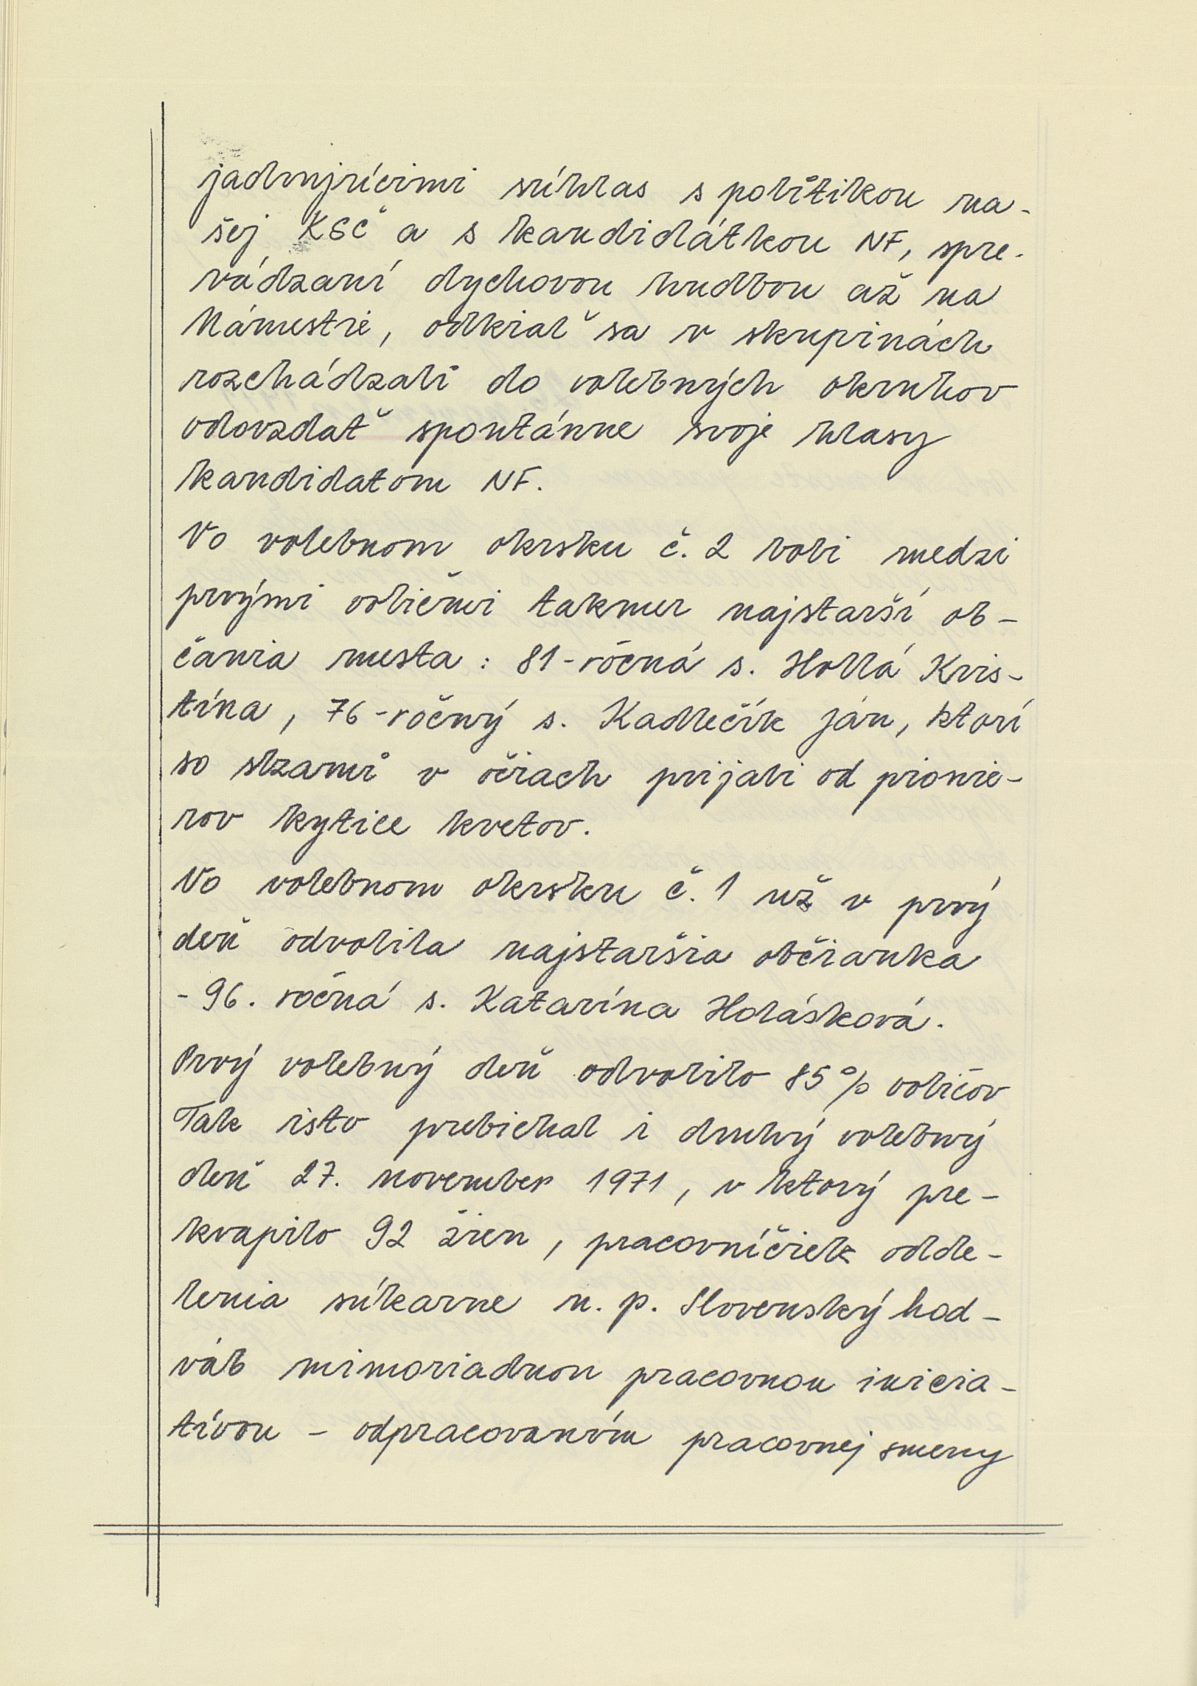 jadrujúcimi súhlas s politikou na-
šej KSČ a s kandidátkou NF, spre-
vádzaní dychovou hudbou až na
Námestie, odkiaľ sa v skupinách
rozchádzali do volebných okruhov
odovzdať spontánne svoje hlasy
kandidatom NF.
Vo volebnom okrsku č. 2 boli medzi
prvými voličmi takmer najstarší ob-
čania mesta: 81-ročná s. Hollá Kris-
tína, 76-ročný s. Kadlečík Ján, ktorí
so slzami v očiach prijali od pionie-
rov kytice kvetov.
Vo volebnom okrsku č. 1 už v prvý
deň odvolila najstaršia občianka
- 96. ročná s. Katarína Holásková.
Prvý volebný deň odvolilo 85% voličov
Tak isto prebiehal i druhý volebný
deň 27. november 1971, v ktorý pre-
kvapilo 92 žien, pracovníčiek odde-
lenia súkarne n. p. Slovenský hod-
váb mimoriadnou pracovnou inicia-
tívou - odpracovaním pracovnej smeny